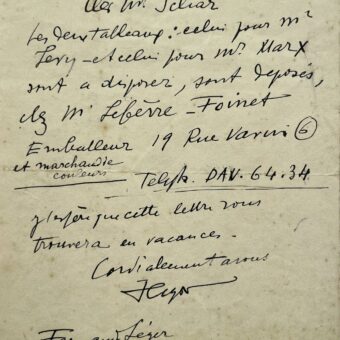 Cher Mr.
Les deux tableaux : celui pour Mr
Levy - et celui pour Mr. Marx
sont a disposer, sont déposés,
chez Mr Lefèvre - Foinet
Emballeur 19 Rue Vavin (6)
et marchand de
couleurs
Teleph. DAV. 64.34
j'espère que cette lettre vous
trouvera en vacances.
Cordialement a vous
FLeger
Léger